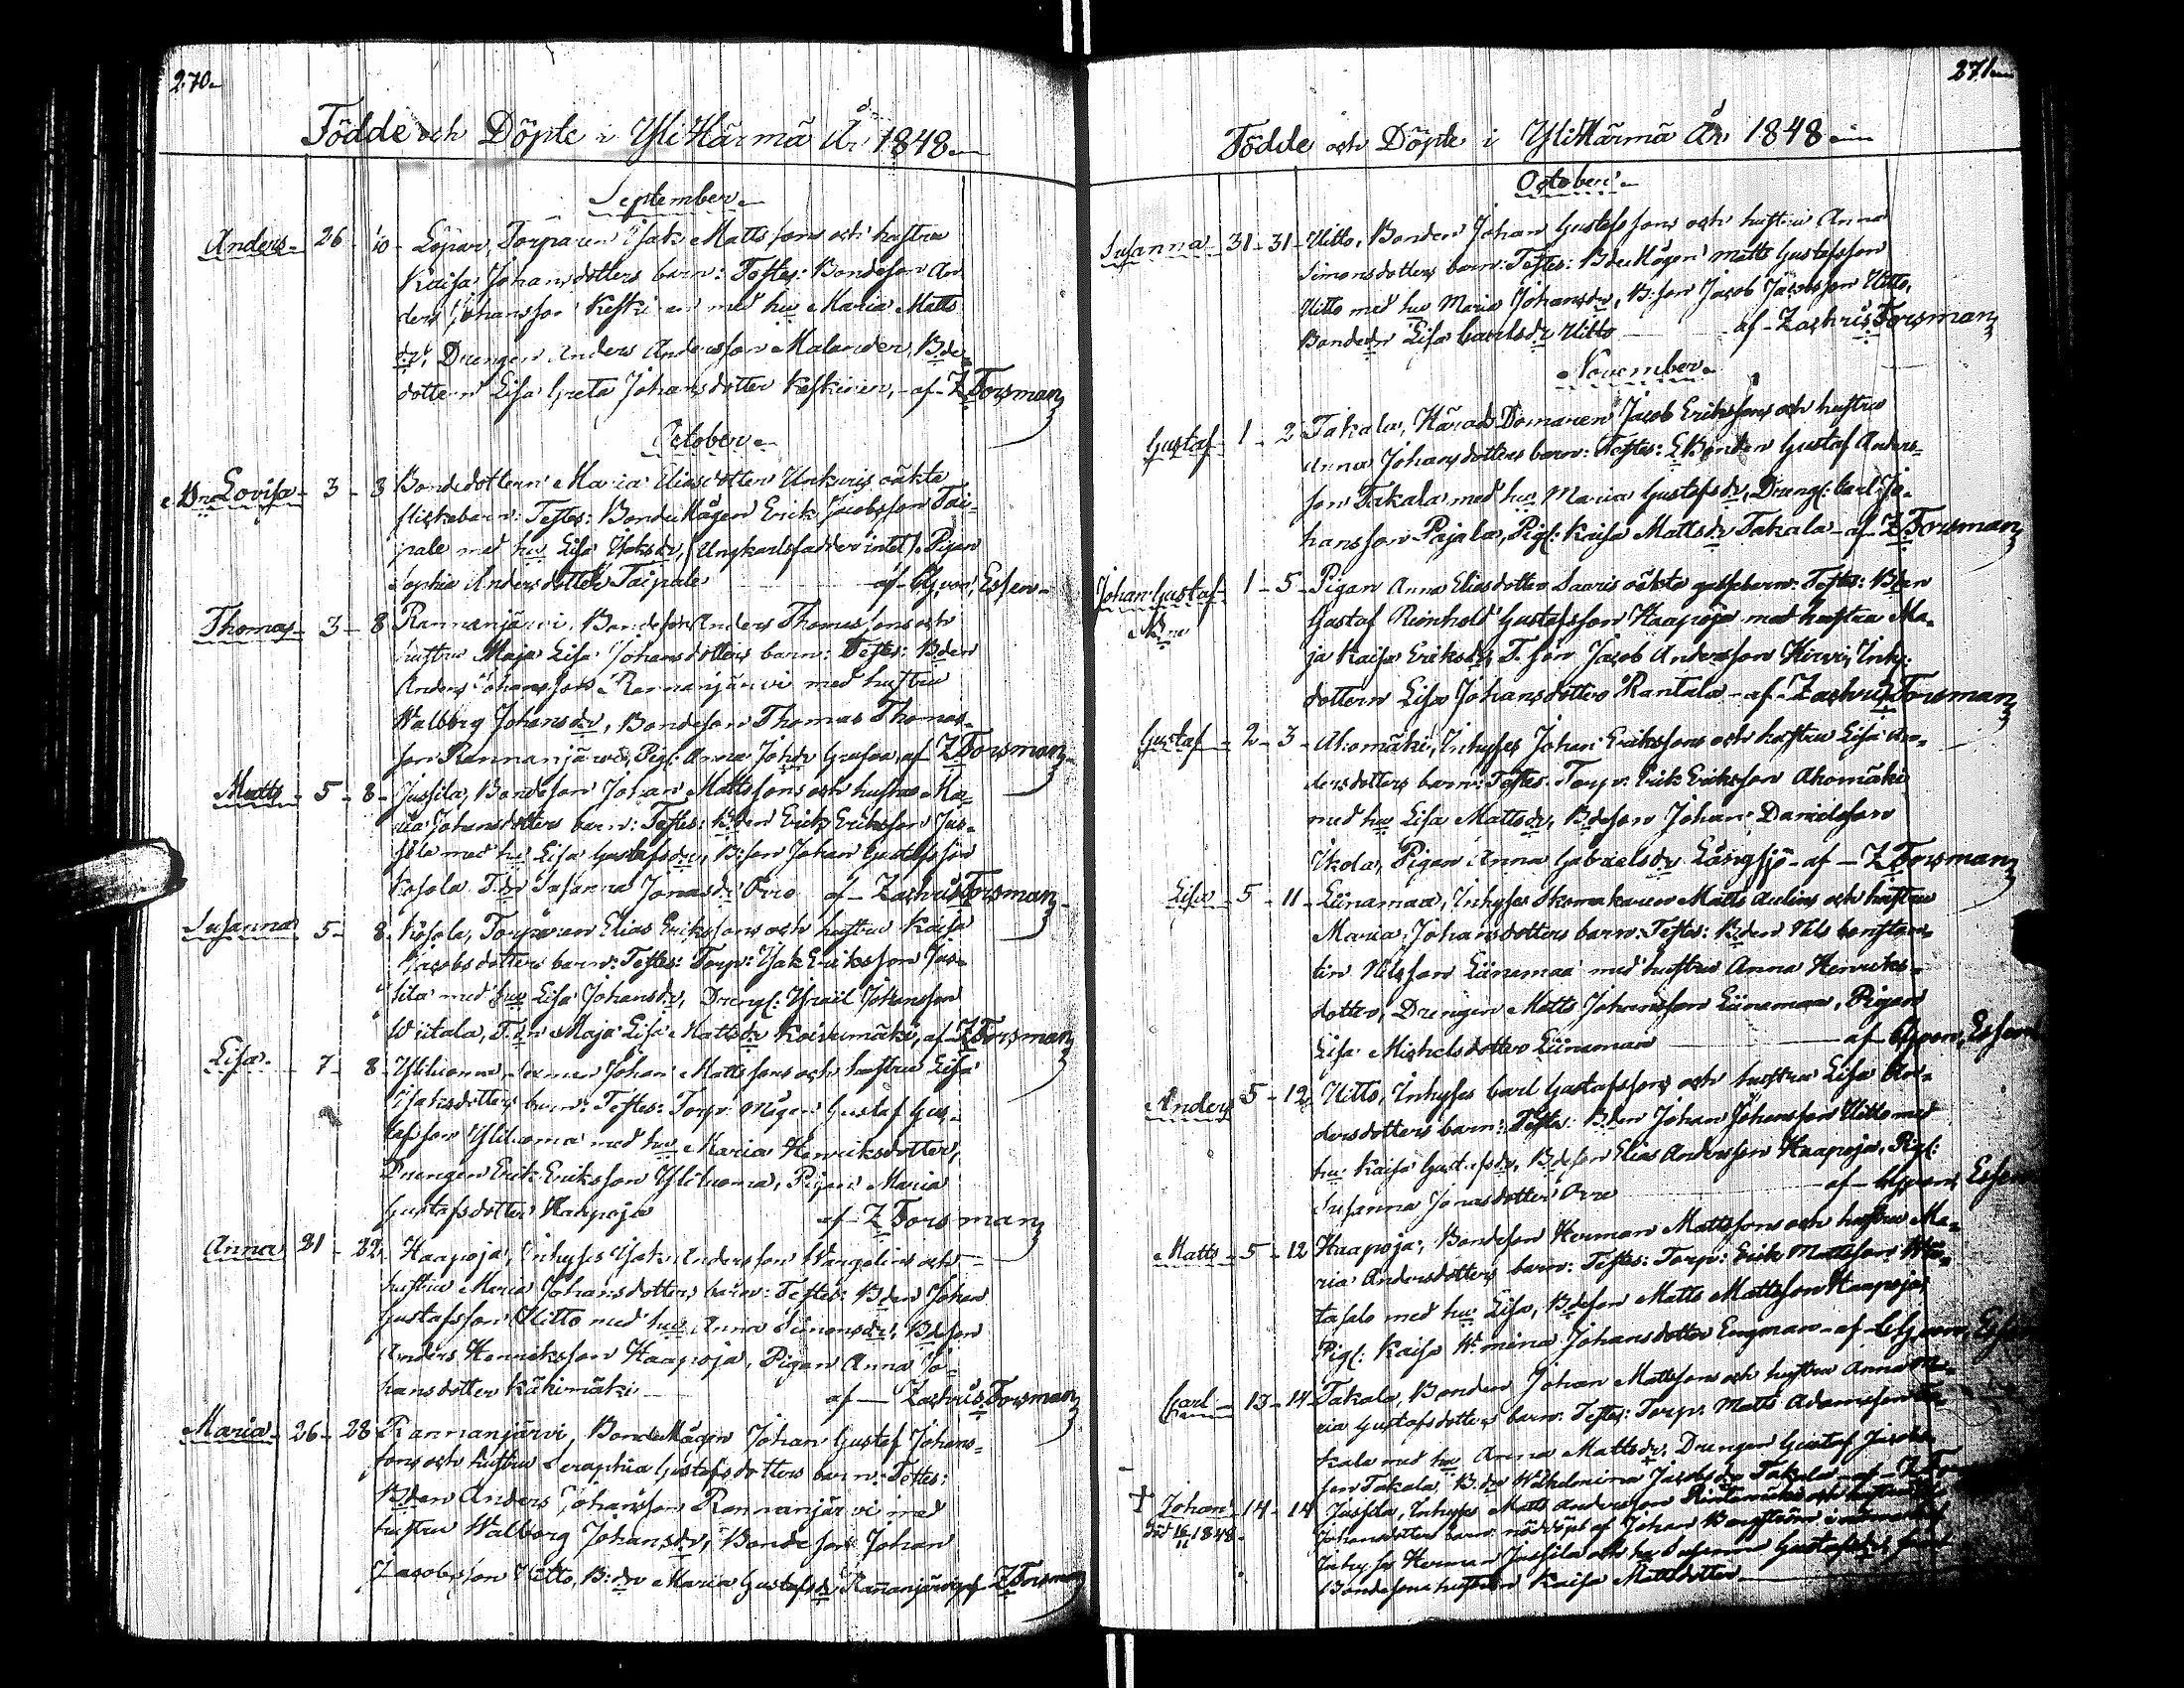 270.
Födde och Döpte i YliHärmä År 1848.
September.
Anders 26 10 Lopar, Torparen Isak Mattssons och hustru
Kaisa Johansdotters barn: Testes: Bondeson An
ders Johansson Keski med hu Maria Matts
dr, Drengen Anders Andersson Malander, Bde
dottern Lisa Greta Johansdotter Keskinen, af Z Forsman
October.
Lovisa 3 3 Bondedottern Maria Eliasdotter oäkta
flickebarn: Testes: BondeMågen Erick Jacobsson Tai
pale med hu Lisa Isaksdr, (Ungkarlsfadder intet). Pigan
Sophia Andersdotter Taipale af von Essen
Thomas 3 8 Rannanjärvi, Bondeson Anders Thomassons och
hustru Maja Lisa Johansdotters barn: Testes: Bden
Anders Johansson Rannanjärvi med hustru
Walborg Johansdr, Bondeson Thomas Thomas
son Rannanjärvi, Pig: Anna Johdr af Z Forsman
Matts 5 8 Jussila, Bondeson Johan Mattssons och hustru Ma
ria Johansdotters barn: Testes: Bden Erick Ericksson Jus
sila med hu Lisa Gustafsdr, B:son Johan Gustafsson
Kosola T.dr Susanna Jonasdr Orre af Zachris Forsman
Susanna 5 8 Kosola, Torparen Elias Erikssons och hustru Kaisa
Jacobsdotters barn: Testes: Torp: Isak Eriksson Jus
sila med hu Lisa Johansdr, Dreng: Israil Johansson
Wiitala, T.dr Maja Lisa Mattsdr Koivumäki, af Z Forsman
Lisa 7 8 Yliluoma, Johan Mattssons och hustru Lisa
Isaksdotters barn: Testes: Torp: mågen Gustaf Gus
tafsson Yliluoma med hu Maria Henriksdotter,
Drengen Erik Eriksson Yliluoma, Pigan Maria
Gustafsdotter Haapoja af Z Forsman
Anna 21 22 Haapoja, Inhyses Isak Andersson Wargelin och
hustru Maria Johansdotters barn: Testes: Bden Johan
Gustafsson Uitto med hu Anna Simonsdr, Bdeson
Anders Henriksson Haapoja, Pigan Anna Jo
hansdotter Kähimäki af Zachris Forsman
Maria 26 28 Rannanjärvi, BondeMågen Johan Gustaf Johans
sons och hustru Seraphia Gustafsdotters barn: Testes:
Bden Anders Johansson Rannanjärvi med
hustru Walborg Johansdr, Bondeson Johan
Jacobsson Uitto, B:dr Maria Gustafsdr Rannanjärvi, af Z Forsman
271.
Födde och Döpte i YliHärmä År 1848
October.
Susanna 31 31 Uitto, Bonden Johan Gustafssons och hustru Anna
Simonsdotters barn: Testes: BdeMågen Matts Gustafsson
Uitto med hu Maria Johansdr, B:son Jacob Jacobsson Uitto,
Bondedr Lisa Carlsdr Uitto af Zachris Forsman
November.
Gustaf 1 2 Takala, HäradsDomaren Jacob Erikssons och hustru
Anna Johansdotters barn: Testes: Bonden Gustaf Anders
son Takala med hu Maria Gustafsdr, Dreng: Carl Jo
hansson Pajala, Pig: Kaisa Mattsdr Takala af Z Forsman
Johan Gustaf 1 5 Pigan Anna Eliasdotter Saaris oäkta gossebarn: Testes: Bden
Gustaf Reinhold Gustafsson Haapoja med hustru Ma
ja Kaisa Eriksdr, T. son Jacob Andersson Hirvi, Inhs:
dottern Lisa Johansdotter Rantala af Zachris Forsman
Gustaf 2 3 Ahomäki, Inhyses Johan Erikssons och hustru Lisa An
dersdotters barn: Testes: Torp: Erik Eriksson Ahomäki
med hu Lisa Mattsdr, Bdeson Johan Danielsson
Ikola, Pigan Anna Gabrielsdr Långsjö af Z Forsman
Lisa 5 11 Liinamaa, Inhyses Skomakaren Matts Aulins och hustru
Maria Johansdotters barn: Testes: Bden Nils Constan
tin Nilsson Liinamaa med hustru Anna Henriks
dotter, Drengen Matts Johansson Liinamaa, Pigan
Lisa Michelsdotter Liinamaa af von Essen
Anders 5 12 Uitto, Inhyses Carl Gustafssons och hustru Lisa An
dersdotters barn: Testes: Bden Johan Johansson Uitto med
hu Kaisa Gustafsdr, Bdeson Elias Andersson Haapoja, Pig:
Susanna Jonasdotter Orre af von Essen
Matts 5 12 Haapoja, Bondeson Herman Mattssons och hustru Ma
ria Andersdotters barn: Testes: Torp: Erik Mattsson
med hu Lisa, Bdeson Matts Mattsson Haapoja,
Pig: Kaisa W:mina Johansdotter Engman af von Essen
Carl 13 14 Takala, Bonden Johan Mattssons och hustru Anna Ma
ria Gustafsdotters barn: Testes: Torp: Matts Adamsson Ta
kala med hu Anna Mattsdr, Drengen Gustaf Jacobs
son Takala, B:dr Wilhelmina Jacobsdr Takala af Z Forsman
† Johan 14 14 Jussila, Inhyses Matts Andersson Rintamäki och hustru
död 16/11 1848. Johansdotters barn nöddöpt af Johan Bergström i närvaro af
Inhyses Herman Jussila och hu Gustafsdr, samt
Bondesons hustrun Kaisa Mattsdotter